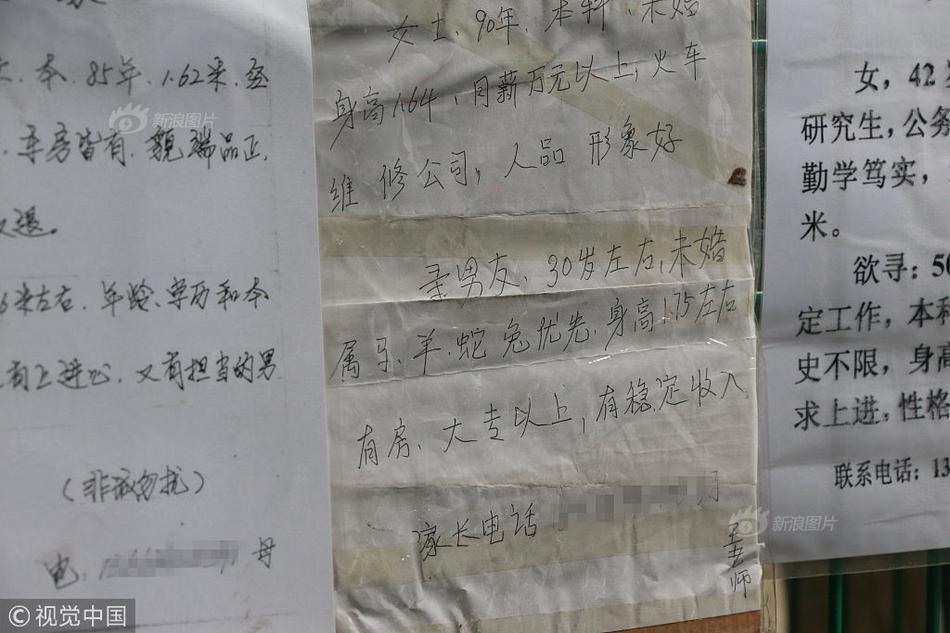 本.85年.1.62米.
车房皆有.貌端品正.
退。
米左右.年龄.学历和本
有上进心.又有担当的男
(非诚勿扰)
电: 母
女士,90年,本科,未婚
身高1.64,月薪万元以上,火车
维修公司,人品 形象好
寻男友、30岁左右,未婚
属马、羊、蛇 兔优先.身高1.75左右
有房、大专以上,有稳定收入
家长电话
老师
女,42
研究生,公务
勤学笃实,
米。
欲寻:50
定工作,本科
史不限,身高
求上进,性格
联系电话:13
新浪图片
新浪图片
© 视觉中国